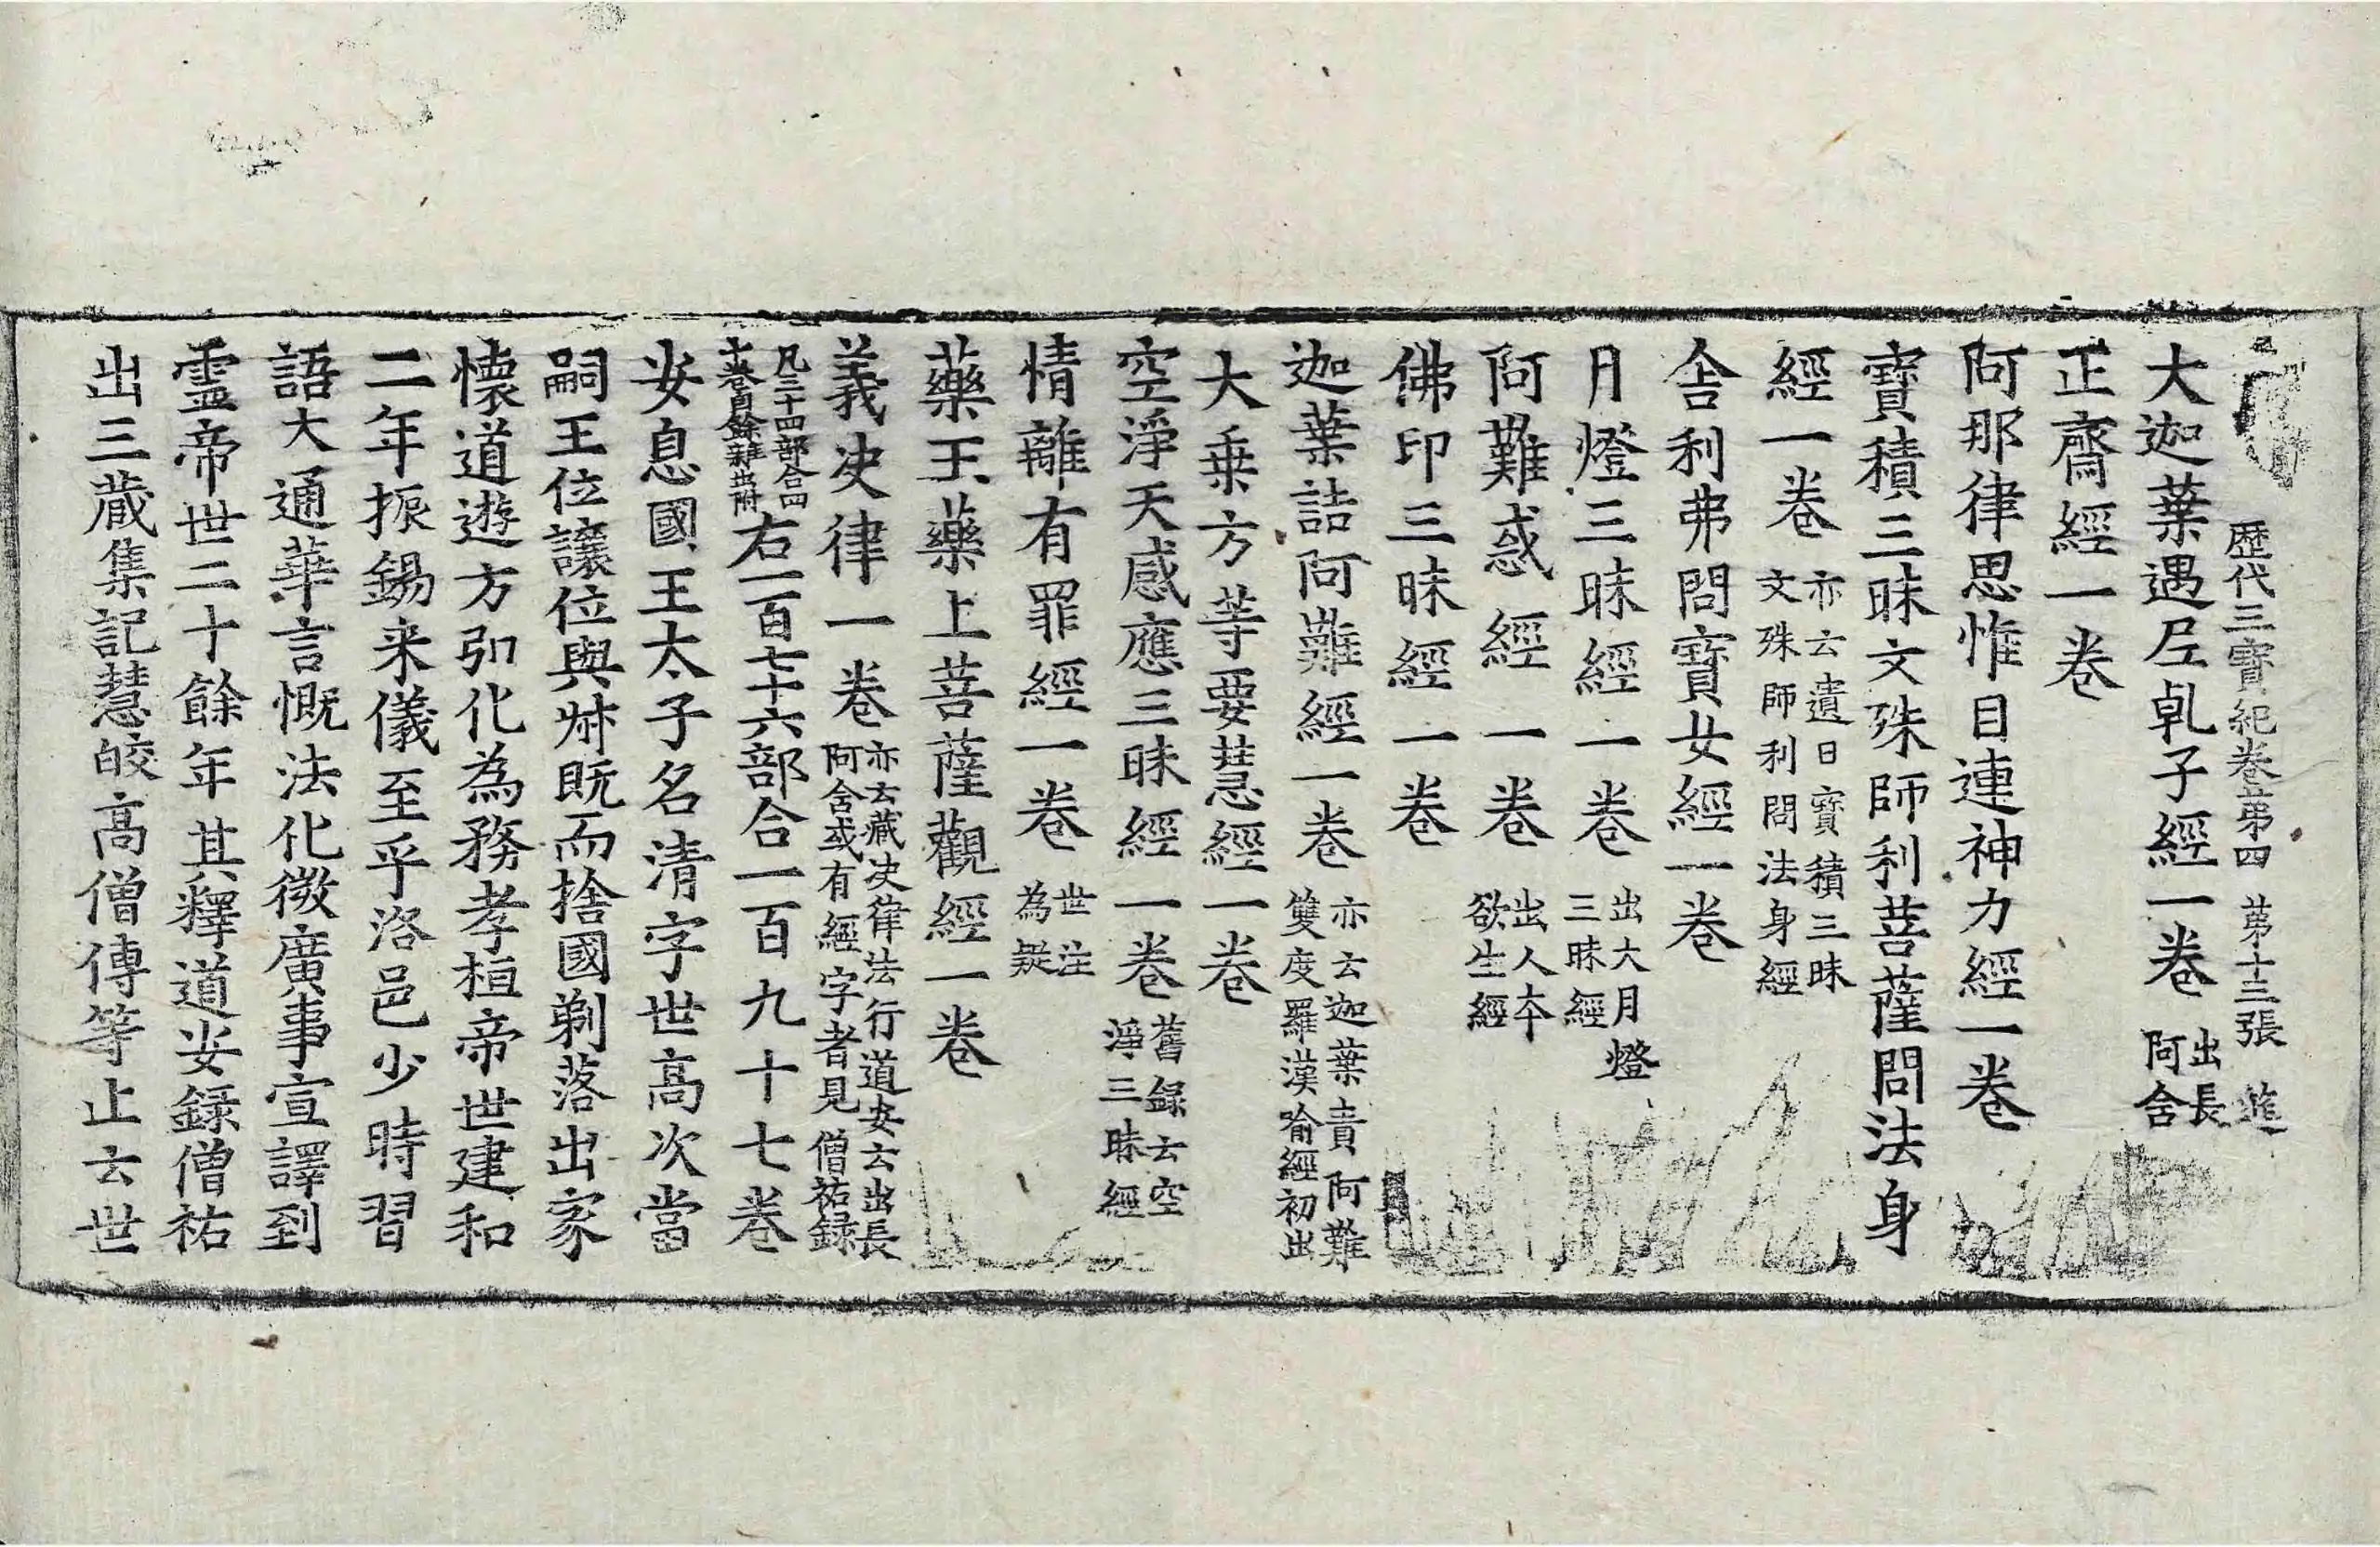 歷代三寶紀卷第四 第十三張 䢖
大迦葉遇尼乹子經一卷 出長阿含
正齋經一卷
阿那律思惟目連神力經一卷
寶積三昧文殊師利菩薩問法身
經一卷 亦云遺日寶積三昧文殊師利問法身經
舍利弗問寶女經一卷
月燈三昧經一卷 出大月燈三昧經
阿難惑經一卷 出人本欲生經
佛印三昧經一卷
迦葉詰阿難經一卷 亦云迦葉責阿難雙度羅漢喻經初出
大乗方等要慧經一卷
空淨天感應三昧經一卷 舊録云空淨三昧經
情離有罪經一卷 世注為疑
藥王藥上菩薩觀經一卷
義决律一卷 亦云藏决律法行道安云出長阿含或有經字者見僧祐録
凡三十四部合四十卷自餘雜出附 右一百七十六部合一百九十七卷
安息國王太子名清字世高次當
嗣王位讓位與叔既而捨國剃落出家
懷道遊方弘化為務孝桓帝世建和
二年振錫来儀至乎洛邑少時習
語大通華言慨法化微廣事宣譯到
靈帝世二十餘年其釋道安録僧祐
出三蔵集記慧皎高僧傳等止云世